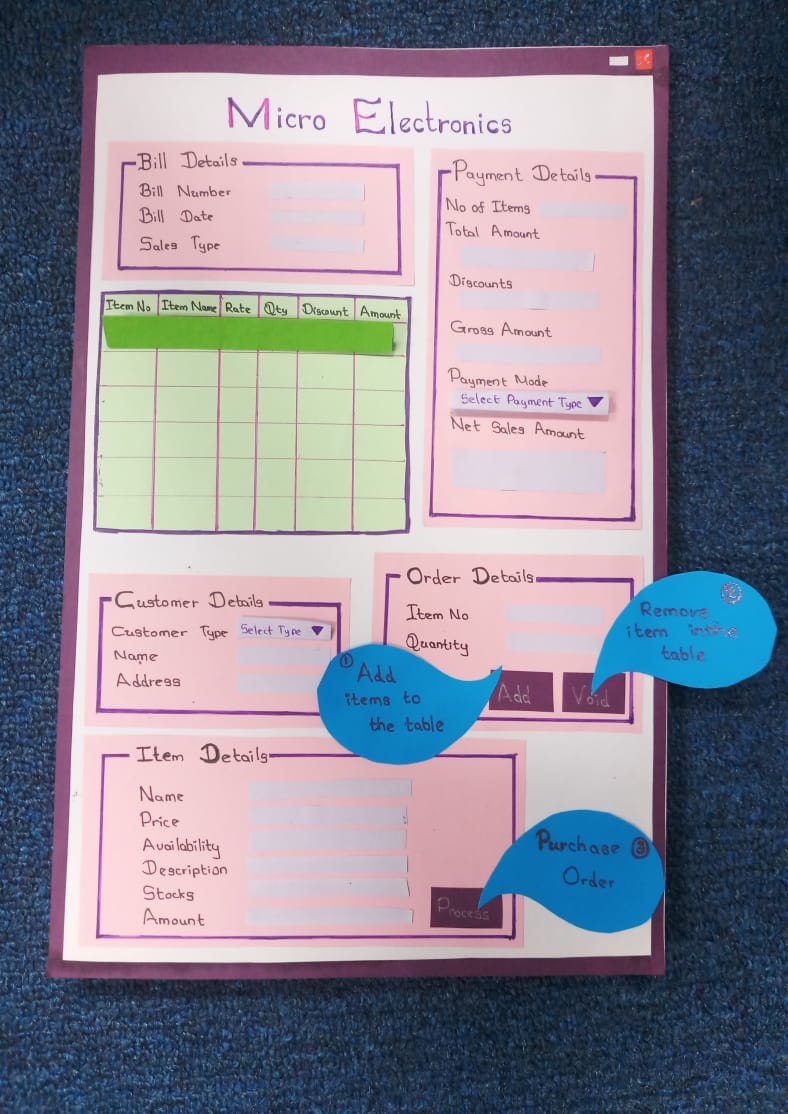 Micro Electronics
Bill Details
Bill Number
Bill Date
Sales Type
Payment Details
No of Items
Total Amount
Discounts
Gross Amount
Payment Mode
Select Payment Type
Net Sales Amount
Item No Item Name Rate Qty Discount Amount
Customer Details
Customer Type Select Type
Name
Address
Order Details
Item No
Quantity
Add Void
① Add
items to
the table
②
Remove
item in the
table
Item Details
Name
Price
Availability
Description
Stocks
Amount
Process
Purchase ③
Order